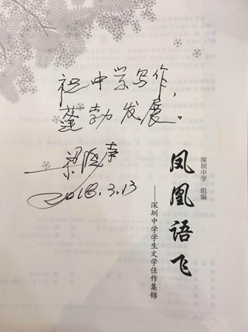 祝中学写作,
蓬勃发展。
2018.3.13
深圳中学 组编
凤凰语飞
——深圳中学学生文学佳作集锦